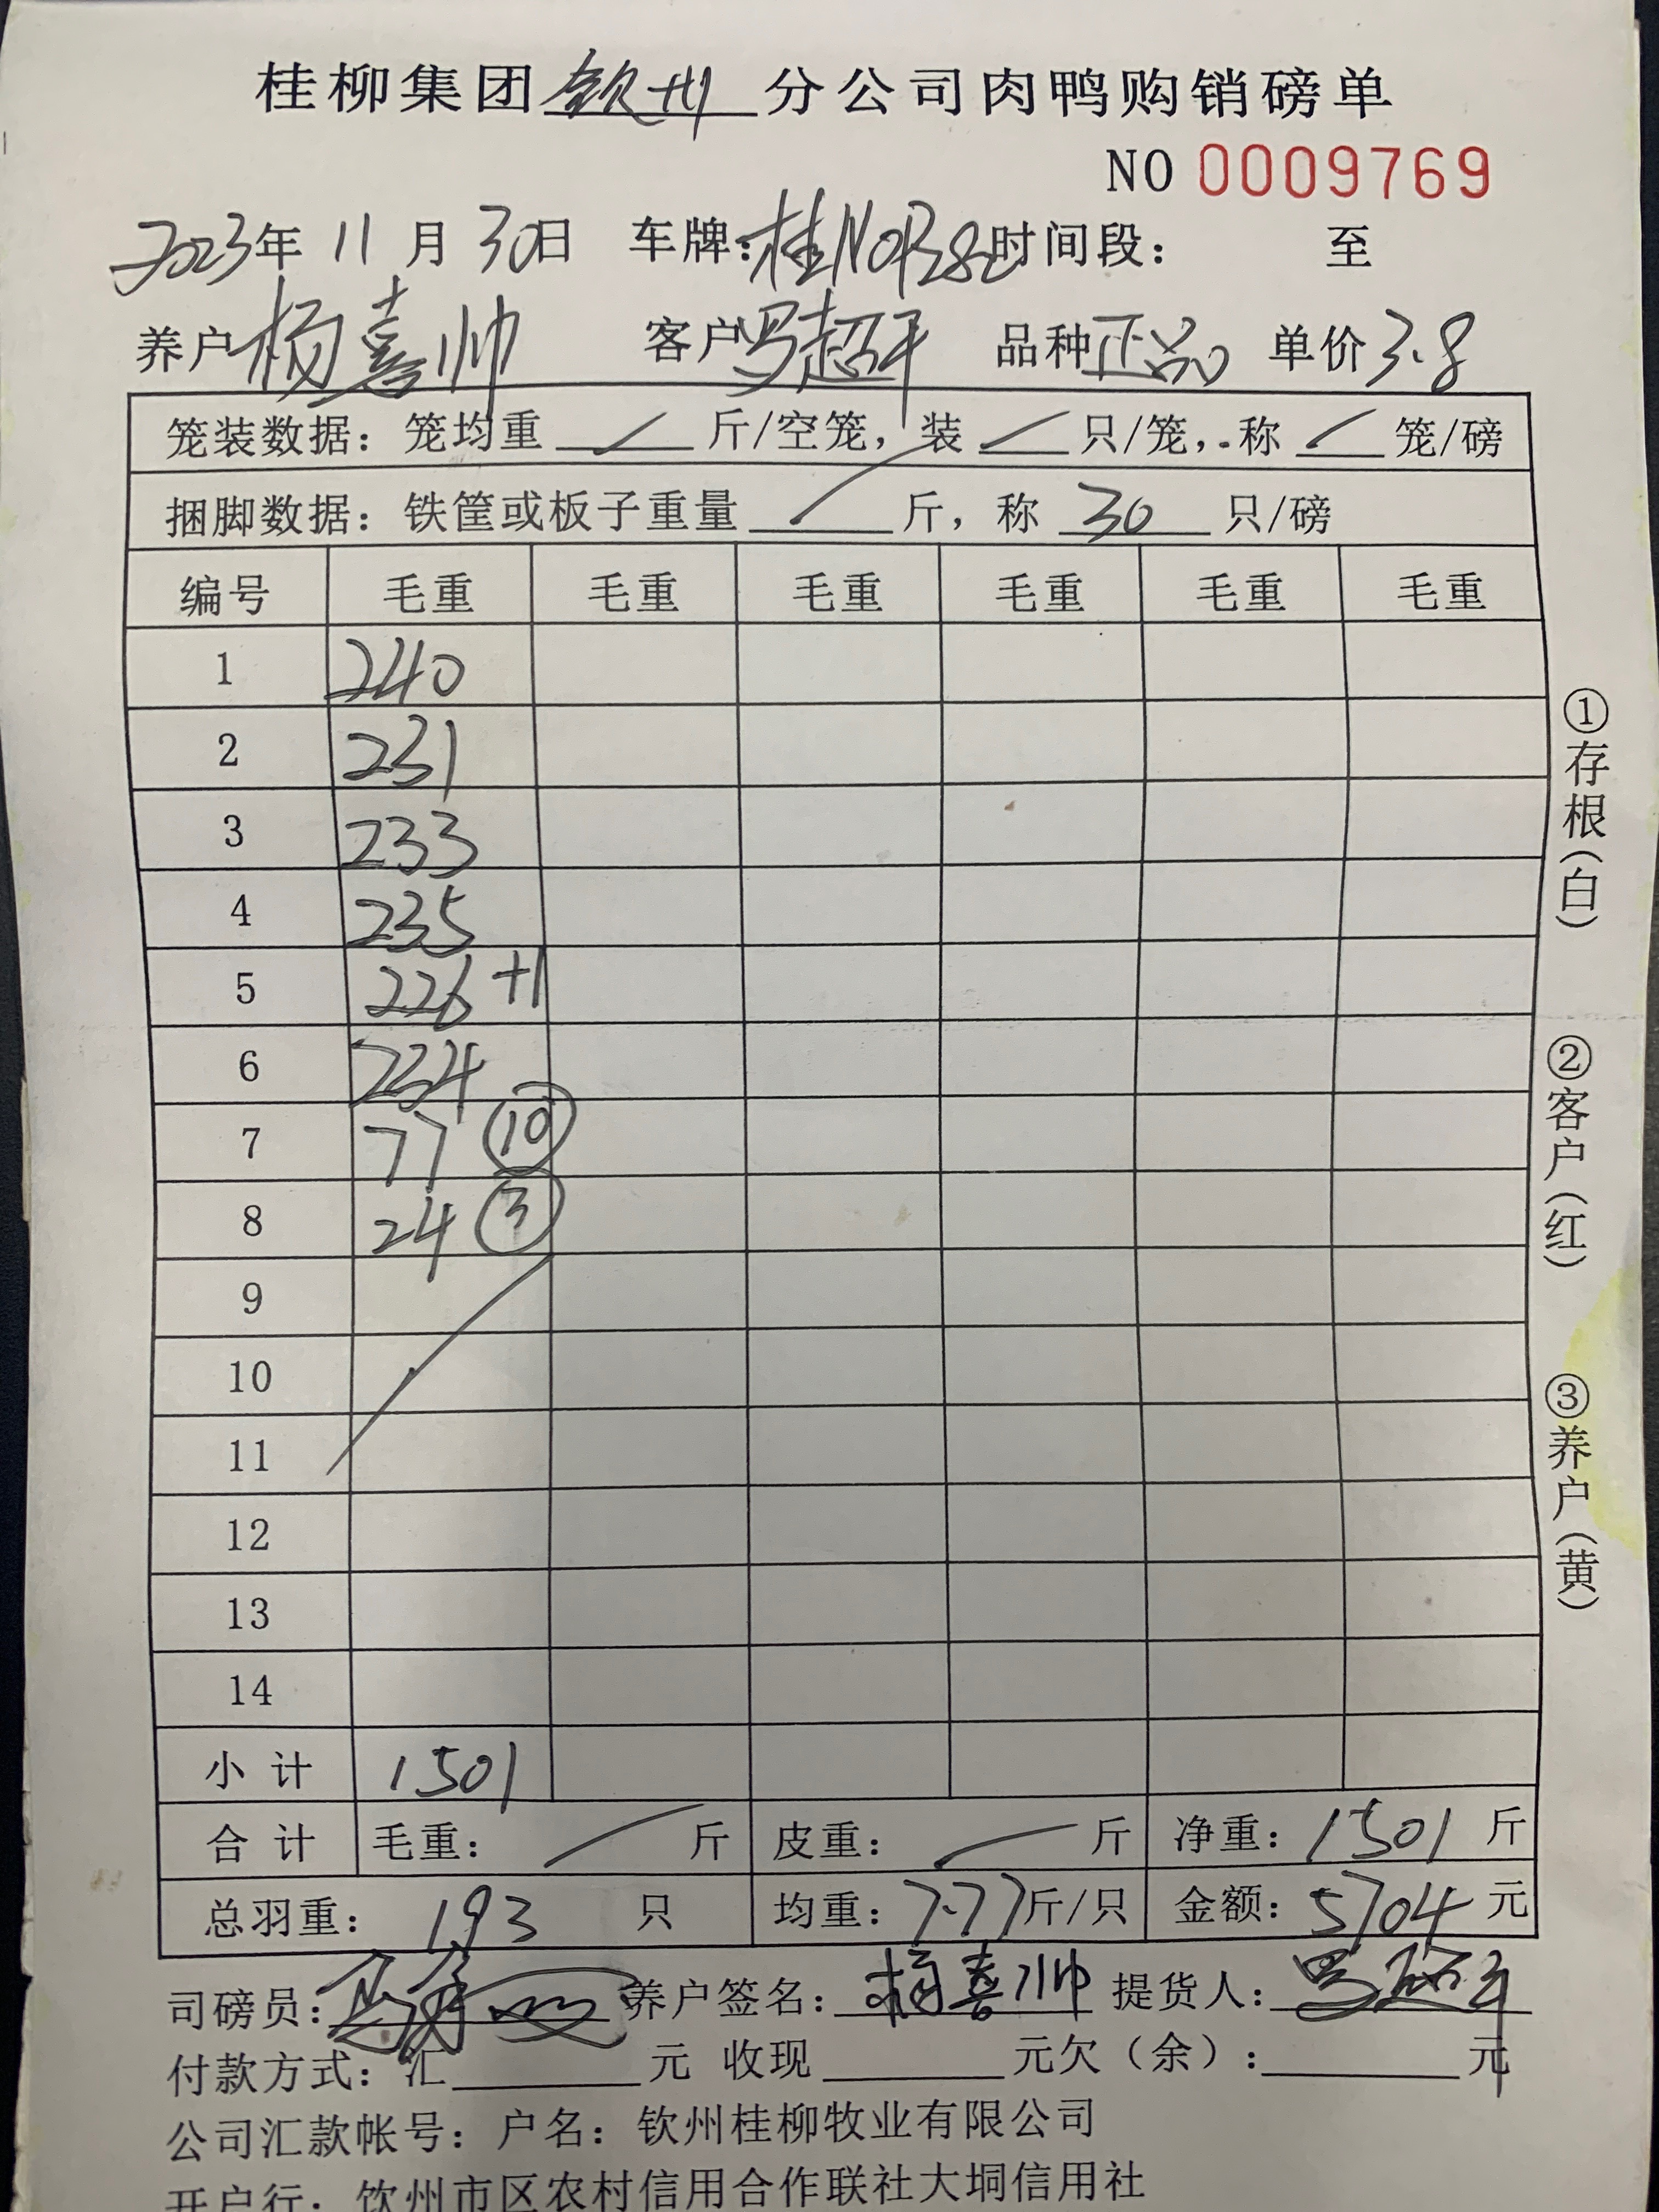 桂柳集团钦州分公司肉鸭购销磅单
NO 0009769
2023年 11 月 30日 车牌: 桂N 时间段: 至
养户 杨喜帅 客户 罗超平 品种 正品 单价 3.8
笼装数据: 笼均重 / 斤/空笼, 装 / 只/笼, 称 / 笼/磅
捆脚数据: 铁筐或板子重量 / 斤, 称 30 只/磅
编号 毛重 毛重 毛重 毛重 毛重 毛重
1 240
2 231
3 233
4 235
5 226 +1
6 234
7 77 ⑩
8 24 ③
9
10
11
12
13
14
小计 1501
合计 毛重: / 斤 皮重: / 斤 净重: 1501 斤
总羽重: 193 只 均重: 7.77 斤/只 金额: 5704 元
司磅员: 养户签名: 杨喜帅 提货人: 罗超平
付款方式: 汇 元 收现 元欠(余): 元
公司汇款帐号: 户名: 钦州桂柳牧业有限公司
开户行: 钦州市区农村信用合作联社大垌信用社
①存根(白)
②客户(红)
③养户(黄)